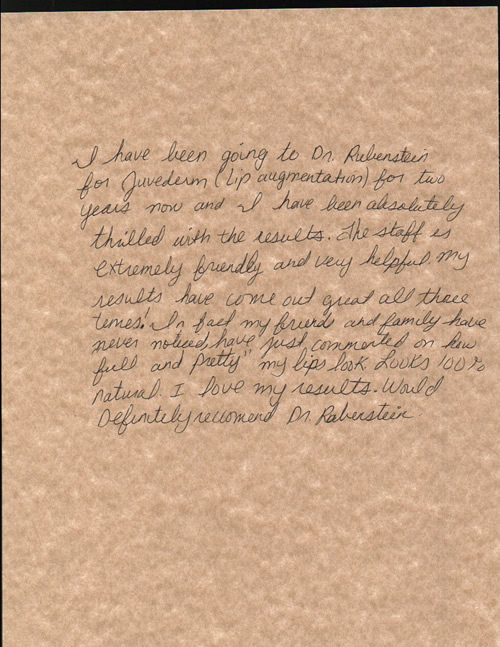 I have been going to Dr. Rubenstein
for Juvederm (Lip augmentation) for two
years now and I have been absolutely
thrilled with the results. The staff is
extremely friendly and very helpful. My
results have come out great all three
times! In fact my friends and family have
never noticed, have just commented on how
full and pretty" my lips look. Looks 100%
natural. I love my results. Would
Definitely reccomend Dr. Rubenstein.